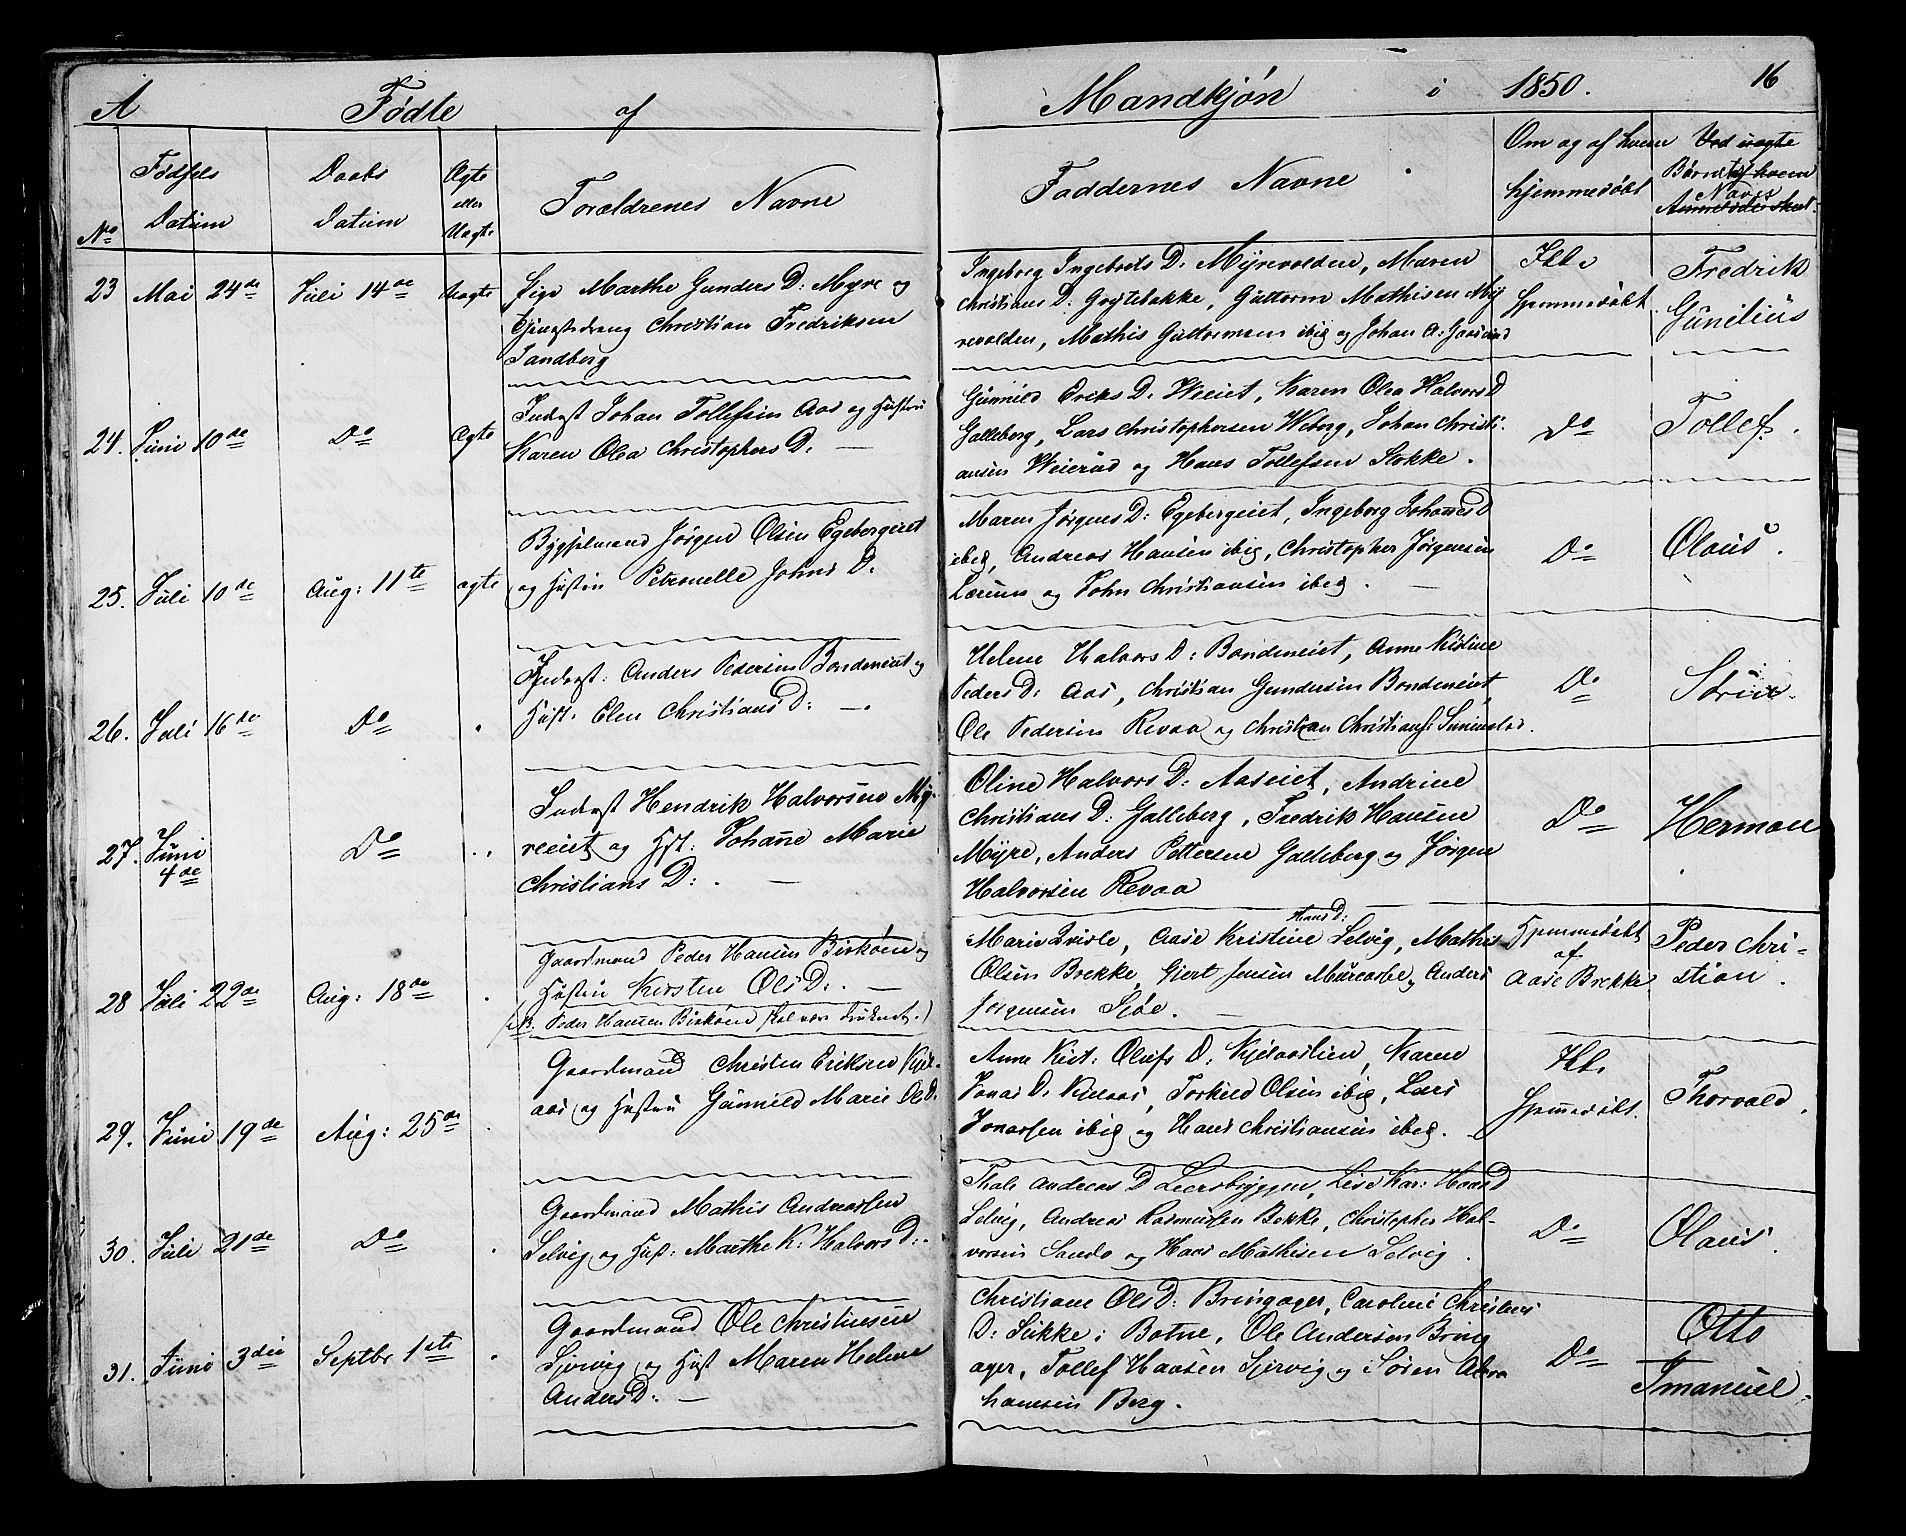 A Fødte af Mandkjøn i 1850. 16
No Fødsels Datum Daabs Datum Ægte eller Uægte Forældrenes Navne Faddernes Navne Om og af hvem hjemmedøbt Ved uægte Børn af hvem Navne
23 Mai 24de Juli 14de Uægte Pige Marthe Gunders D: Myre og
Christian Fredriksen
Sandberg
Ingeborg Ingebrets D: Myrevolden, Maren
Christians D: Grytebakke, Guttorm Mathisen My
revolden, Mathis Guttormsen ibid og Johan
Ikke
hjemmedøbt.
Fredrik
Gunilius
24. Juni 10de Do Ægte Inderst Johan Tollefsen Aas og Hustru
Karen Olea Christophers D. —
Gunnild Eriks D. Weiet, Karen Olea Halvors D
Galleberg, Lars Christophersen Weberg, Johan Christi-
ansen Weierud og Hans Tollefsen Stokke.
Do
Tollef.
25. Juli 10de Aug: 11te ægte Bygselmand Jørgen Olsen Egebergeiet
og Hustru Petronelle Johns D.
Maren Jørgens D: Egebergeiet, Ingeborg Johannes D
ibid, Andreas Hansen ibid, Christopher Jørgensen
Lærum og John Christiansen ibid.
Do
Olaus.
26. Juli 16de Do Inderst: Anders Pedersen Bondeneiet og
Hust. Elen Christians D: —.
Helene Halvors D: Bondeneiet, Anne Kistine
Peders D: Aas, Christian Gundersen Bondeneiet,
Ole Pedersen Revaa og Christian Christians:
Do
27. Juni
4de
Do Inderst Hendrik Halvorsen My-
reeiet og Hst: Johanne Marie
Christians D: . —
Oline Halvors D: Aaseiet, Andrine
Christians D: Galleberg, Fredrik Hansen
Myre, Anders Pettersen Galleberg og Jørgen
Halvorsen Revaa
Do
Herman
28 Juli 22de Aug: 18de Gaardmand Peder Hansen Birkøen og
Hustru Kirsten Ols D: . —
(NB. Peder Hansen Birkøen skal være Enkemd.)
Hans D:
Marie Qvisle, Aase Kristine Selvig, Mathis
Olsen Brekke, Gjert Jensen og Anders
Jørgensen Sjøe. —
Hjemmedøbt
af
Aase Brekke.
Peder Chri-
stian.
29. Juni 19de Aug: 25de Gaardmand Christen Eriksen Kjel-
aas og Hustru Gunnild Marie Ols D.
Anne Kirst: Olufs D. Kjelaaslien, Karen
Jonas D: Kielaas, Torkild Olsen ibid, Lars
Jonassen ibid og Hans Christiansen ibid.
Ikke
hjemmedøbt.
Thorvald.
30. Juli 21de Do Gaardmand Mathis Andreassen
Selvig og Hust: Marthe K: Halvors D:.
Thale Andreas D Leersbryggen, Lise Kar: Hans D
Selvig, Andreas Rasmussen Bekke, Christopher Hal-
vorsen Sando og Hans Mathisen Selvig.
Do
Olaus.
31. Juni 3die Septbr 1ste Gaardmand Ole Christensen
Sjervig og Hust Maren Helene
Anders D: —
Christiane Ols D: Bringager, Caroline Christens
D: Sukke i Botne, Ole Andersen Bring
ager, Tollef Hansen Sjervig og Søren Abra
hamsen Berg.
Do
Otto
Imanuel.